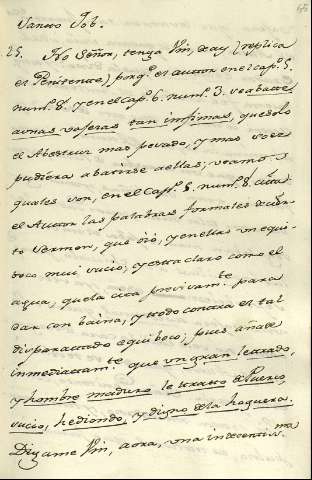 Santo Job.
25. No Señor, tenga Vm, de ay (replica
el Penitente) porq.e el autor en el cap.º 5.
num.º 8.º y en el Cap.º 6. num.º 3. se abate
a unas vaseras tan infimas, que solo
el Abestruz mas pesado, y mas voraz
pudiera abatirse a ellas; veamos
quales son, en el Cap.º 5. num.º 8. cita
el Autor las palabras formales de cier-
to sermon, que oió, y en ellas un equi-
boco mui sucio; y esta claro como el
agua, que la cita precisam.te para
dar con baina, y todo contra el tal
disparatado equiboco; pues añade
inmediatam.te que un gran letrado,
y hombre maduro le trato de Puerco,
sucio, hediondo, y digno de la hoguera.
Digame Vm, aora, una indecentis.ma